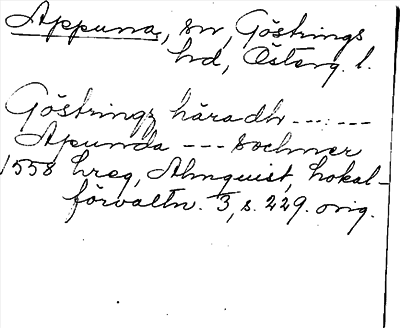 Appuna, sn, Göstrings
hd, Österg. l.
Göstringz häradh -------
Apunda --- sochner
1558 hreg, Almquist, Lokal-
förvaltn. 3, s. 229. orig.